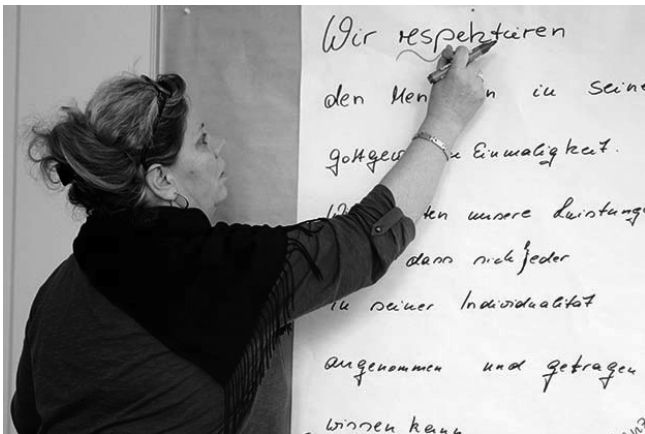 Wir respektieren
den in seine
Einmaligkeit.
unsere Leistung
dass sich jeder
in seiner Individualität
angenommen und getragen
wissen kann